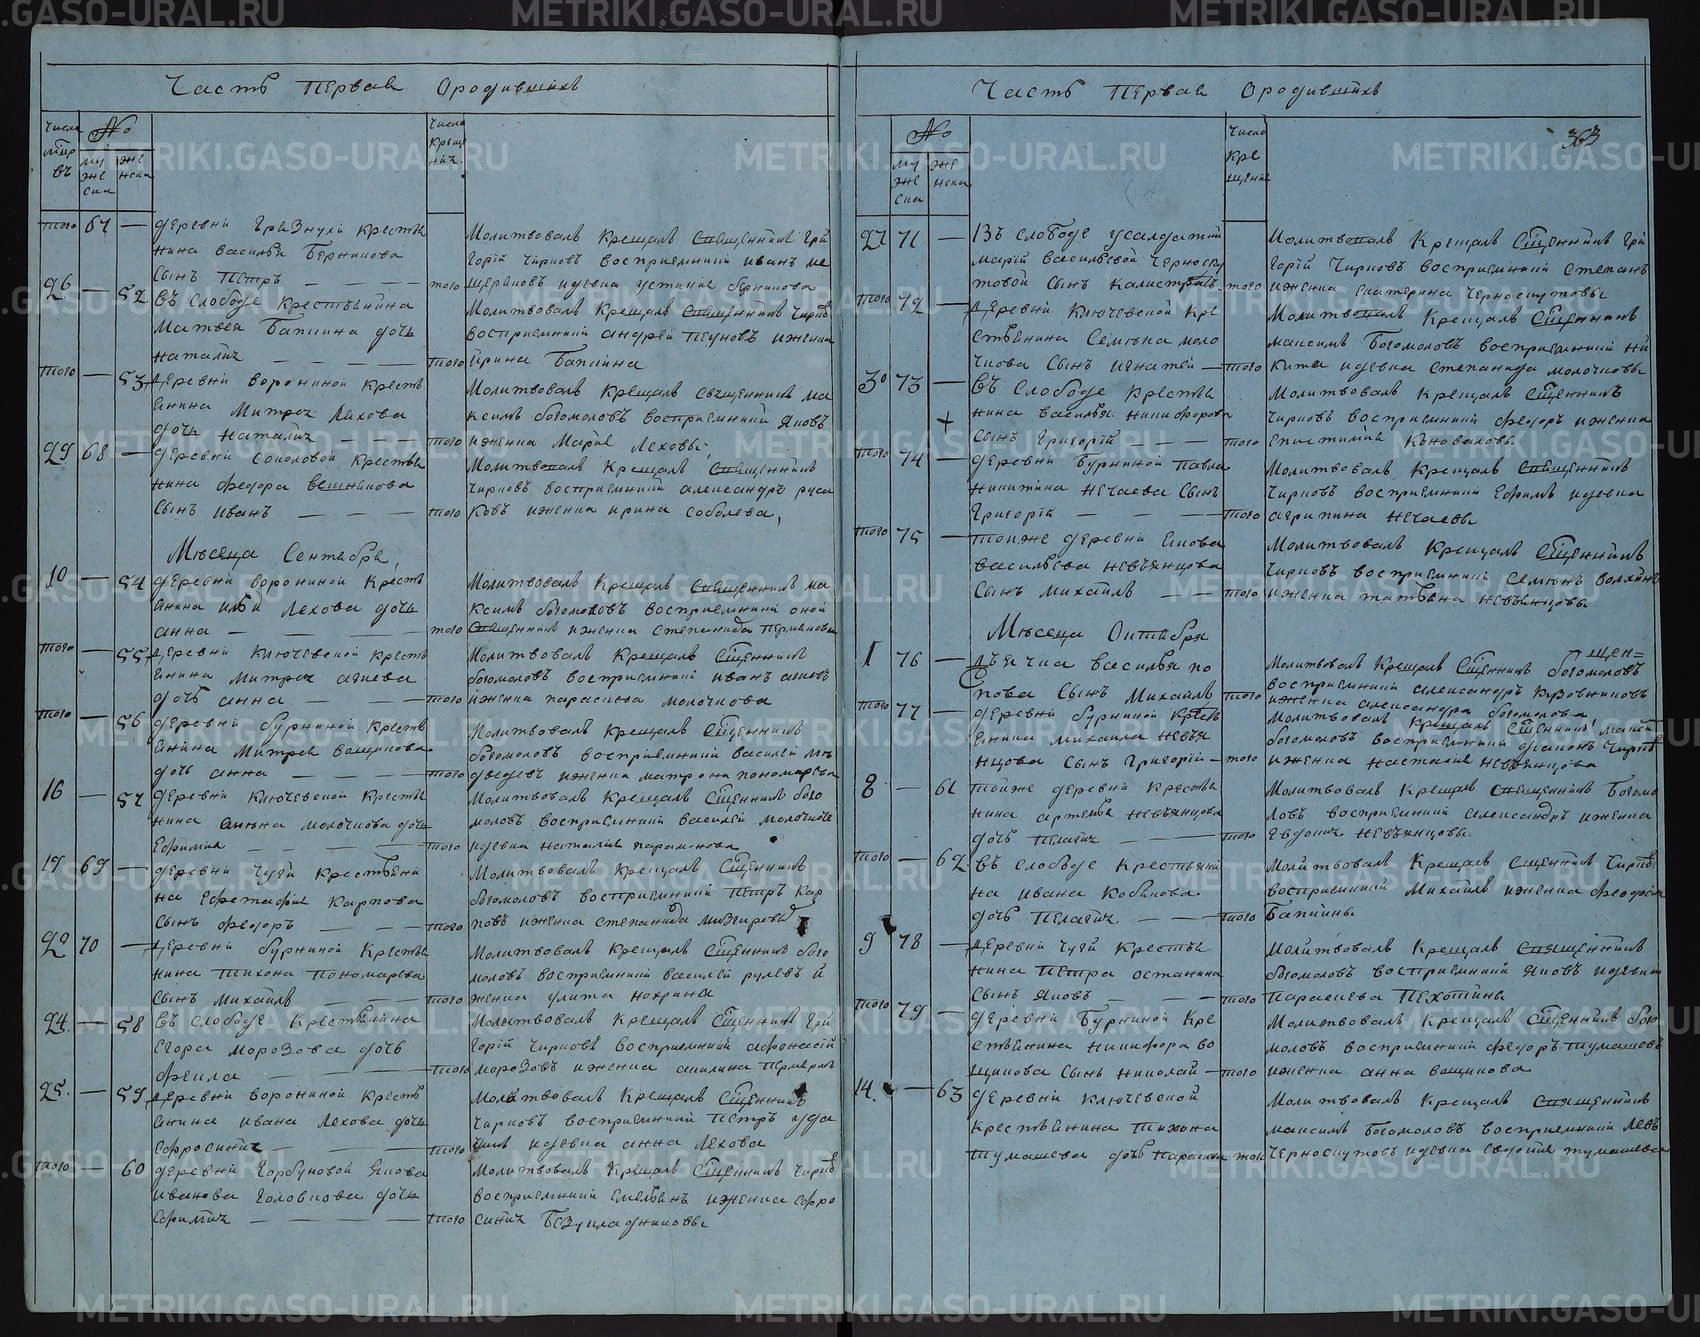 Часть первая о родившихъ
Числа мцовъ
№
мужеска
женска
Числа крещенiя
того 67 — деревни Грязнухи крестьянина Василья Берникова
сынъ Петръ
того
Молитвовалъ крещалъ священникъ Григорiй Чирковъ восприемники Иванъ
26 — 52 въ слободе крестьянина
Матвея Бапкина дочь
Наталiя
того
Молитвовалъ крещалъ священникъ Чирковъ
восприемники Андрей
Ирина Бапкина
того — 53 деревни Ворониной крестьянина
Митрея Лехова
дочь Наталiя
того
Молитвовалъ крещалъ священникъ Максимъ Богомоловъ восприемники Яковъ
и женка Марiя Леховы
29 68 — деревни Соколовой крестьянина
Федора
сынъ Иванъ
того
Молитвовалъ крещалъ священникъ
Чирковъ восприемники Александръ Русаковъ и женка Ирина Соболева
Месяца Сентября
10 — 54 деревни Ворониной крестьянина
Ильи Лехова дочь
Анна
того
Молитвовалъ крещалъ священникъ Максимъ Богомоловъ восприемники оной
священникъ и женка Степанида
того — 55 деревни Ключевской крестьянина
Митрея Агиева
дочь Анна
того
Молитвовалъ крещалъ сщенникъ
Богомоловъ восприемники Иванъ Агиевъ
и женка Параскева Молочкова
того — 56 деревни Буркиной крестьянина
Митрея Ващикова
дочь Анна
того
Молитвовалъ крещалъ сщенникъ
Богомоловъ восприемники Василей Медведевъ и женка Матрона Пономарева
16 — 57 деревни Ключевской крестьянина
Семiона Молочкова дочь
Ефимия
того
Молитвовалъ крещалъ сщенникъ Богомоловъ восприемники Василей Молочковъ
и девка Наталiя Парамонова
19 69 — деревни Чуги крестьянина
Евстафiя Карпова
сынъ Федоръ
того
Молитвовалъ крещалъ сщенникъ
Богомоловъ восприемники Петръ Карповъ и женка Степанида
20 70 — деревни Буркиной крестьянина
Тихона Пономарева
сынъ Михаилъ
того
Молитвовалъ крещалъ сщенникъ Богомоловъ восприемники Василей Рулевъ и
женка Улита Нохрина
24 — 58 въ слободе крестьянина
Егора Морозова дочь
Фекла
того
Молитвовалъ крещалъ сщенникъ Григорiй Чирковъ восприемники Афонасiй
Морозовъ и женка Акилина
25 — 59 деревни Ворониной крестьянина
Ивана Лехова дочь
Ефросинiя
того
Молитвовалъ крещалъ сщенникъ
Чирковъ восприемники Петръ
и девка Анна Лехова
того — 60 деревни Горбуновой Якова
Иванова Головкова дочь
Ефимiя
того
Молитвовалъ крещалъ сщенникъ Чирковъ
восприемники Емельянъ и женка Ефросинiя Безукладниковы
Часть первая о родившихъ
363
№
мужеска
женска
Числа крещения
27 71 — въ слободе у солдатки
Марiи Васильевой Черноскутовой сынъ Калистратъ
того
Молитвовалъ крещалъ сщенникъ Григорiй Чирковъ восприемники Степанъ
и женка Екатерина Черноскутовы
того 72 — деревни Ключевской крестьянина
Семiона Молочкова сынъ Игнатей
того
Молитвовалъ крещалъ сщенникъ
Максимъ Богомоловъ восприемники Никита и девка Степанида Молочковы
30 73 — въ слободе крестьянина
Василья Никифорова
сынъ Григорiй
того
Молитвовалъ крещалъ сщенникъ
Чирковъ восприемники Федоръ и женка
Епистимия Коноваловы
того 74 — деревни Буркиной Павла
Никитина Нечаева сынъ
Григорiй
того
Молитвовалъ крещалъ священникъ
Чирковъ восприемники Ефимъ и девка
Агрипина Нечаевы
того 75 — той же деревни Якова
Васильева Невьянцова
сынъ Михаилъ
того
Молитвовалъ крещалъ сщенникъ
Чирковъ восприемники Семiонъ
и женка Татьяна Невьянцовы
Месяца Октября
1 76 — дьячка Василья Попова сынъ Михаилъ
того
Молитвовалъ крещалъ сщенникъ Богомоловъ
восприемники Александръ
и женка Александра Богомолова
того 77 — деревни Буркиной крестьянина
Михаила Невьянцова сынъ Григорiй
того
Молитвовалъ крещалъ сщенникъ
Богомоловъ восприемники
и женка Настасия Невьянцова
8 — 61 той же деревни крестьянина
Артемья Невьянцова
дочь Пелагiя
того
Молитвовалъ крещалъ священникъ Богомоловъ восприемники Александръ и женка
Евдокiя Невьянцовы
того — 62 въ слободе крестьянина
Ивана Кобякова
дочь Пелагiя
того
Молитвовалъ крещалъ сщенникъ Чирковъ
восприемники Михаилъ и женка Феодосiя
Бапкины
9 78 — деревни Чуги крестьянина
Петра Останина
сынъ Яковъ
того
Молитвовалъ крещалъ священникъ
Богомоловъ восприемники Яковъ и девка
Параскева Пехотины
того 79 — деревни Буркиной крестьянина
Никифора Вощикова сынъ Николай
того
Молитвовалъ крещалъ сщенникъ Богомоловъ восприемники Федоръ Тумашевъ
и женка Анна Вощикова
14 — 63 деревни Ключевской
крестьянина Тихона
Тумашева дочь Параскева
того
Молитвовалъ крещалъ священникъ
Максимъ Богомоловъ восприемники Левъ
Черноскутовъ и девка Евдокия Тумашева
METRIKI.GASO-URAL.RU